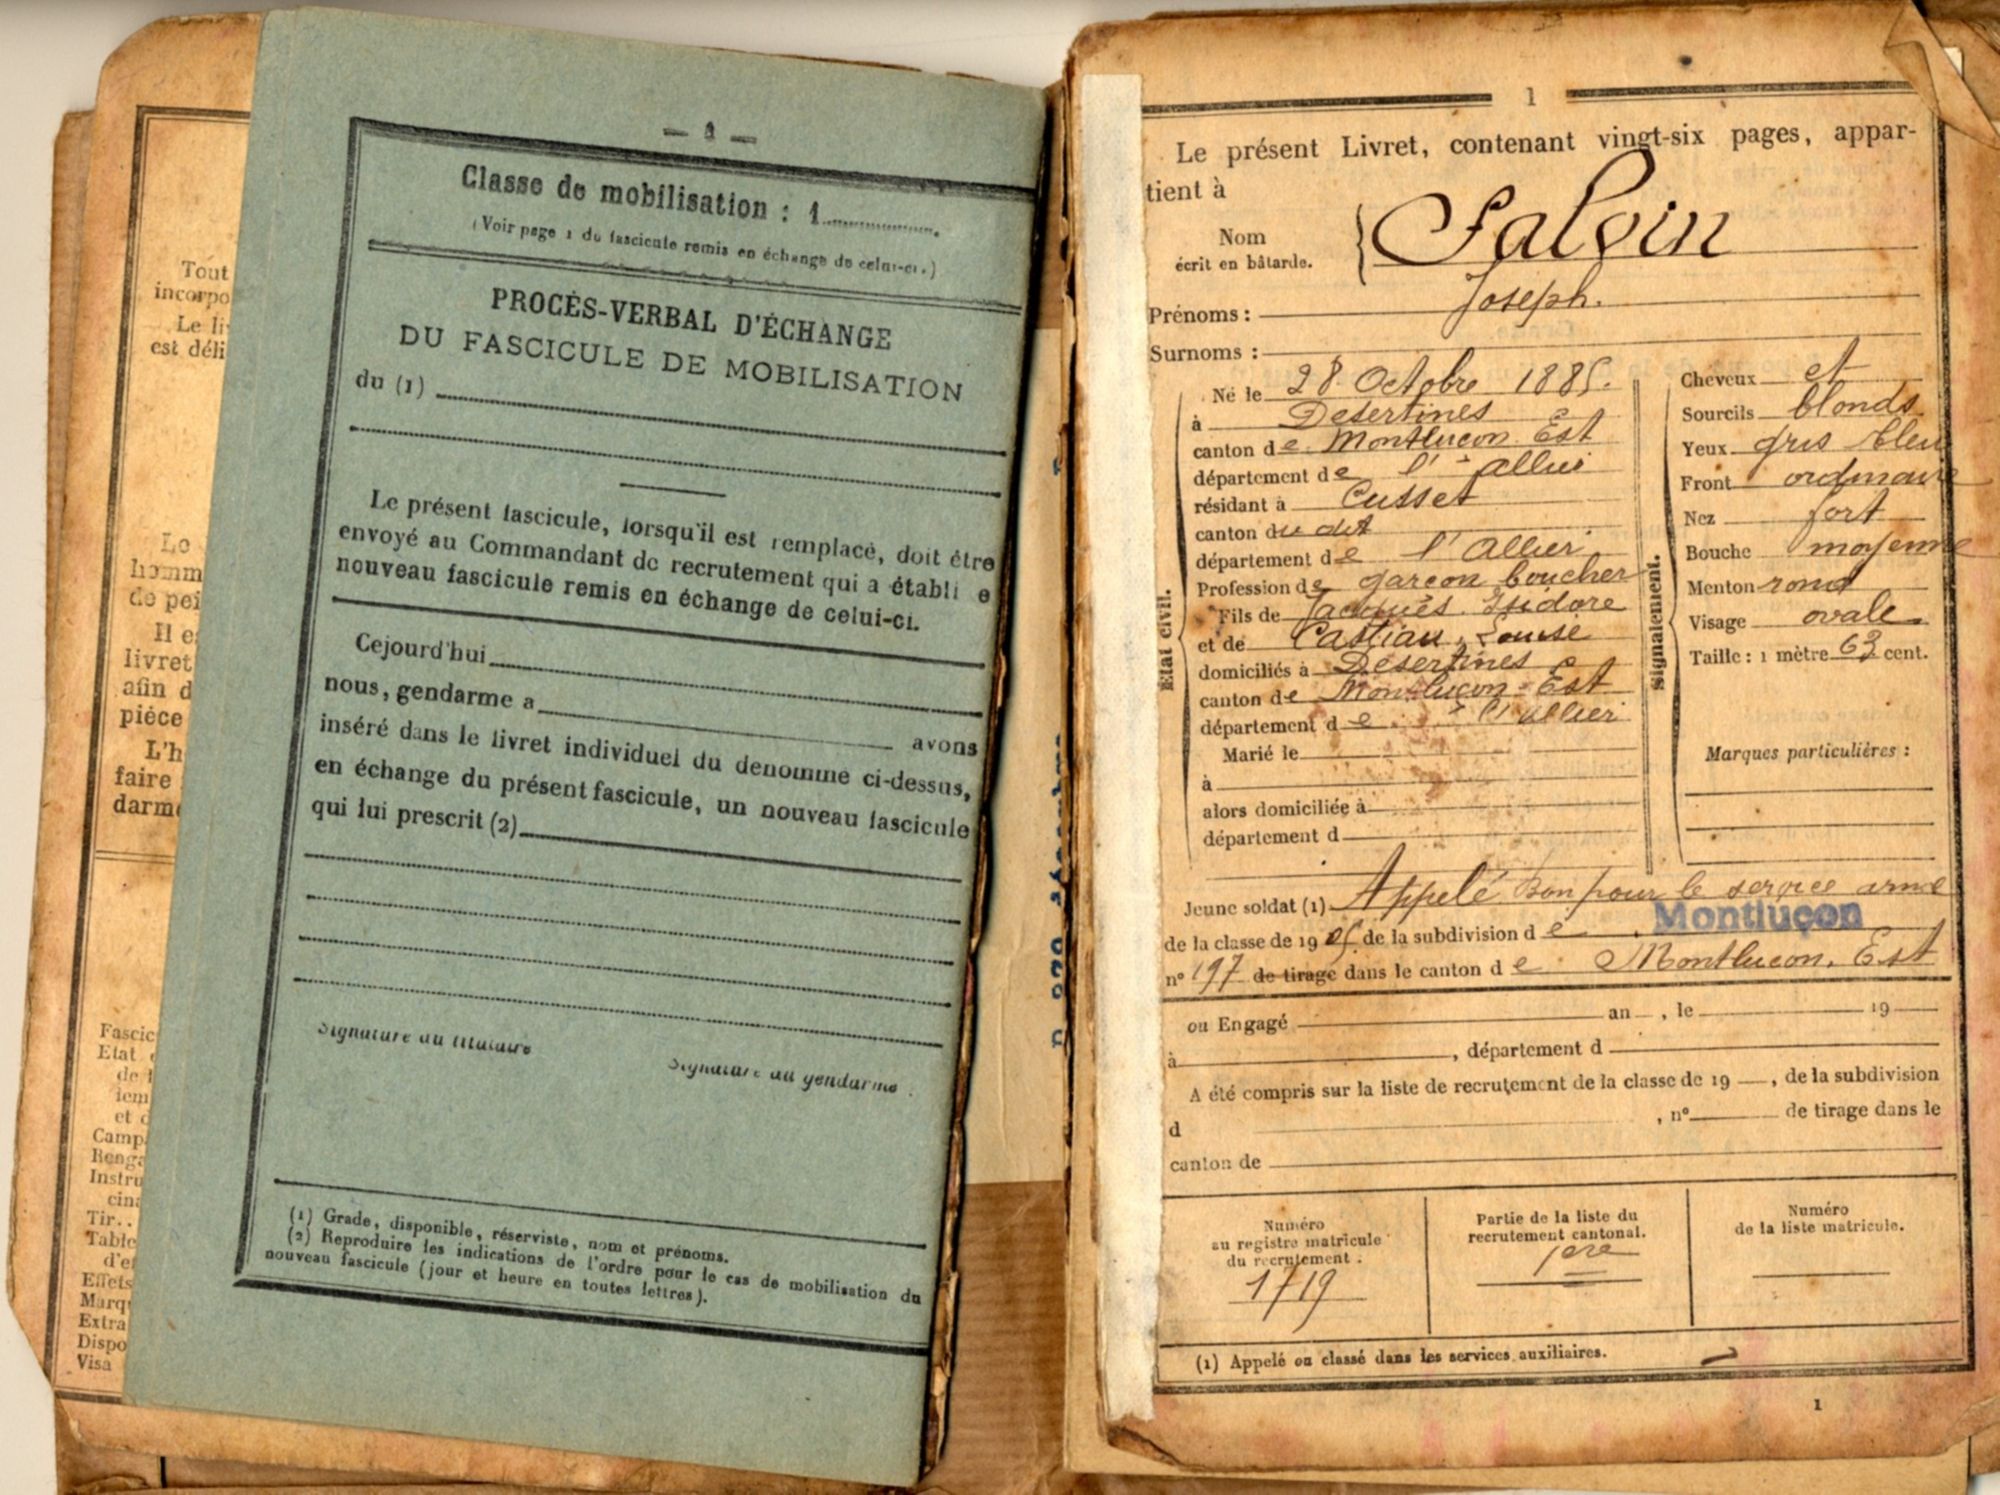 Tout
incorpo
Le li
est déli
Le
homm
de pei
Il e
livret
afin d
pièce
L'h
faire
darme
Fascic
Etat
de l
iem
et d
Camp
Renga
Instru
cina
Tir..
Table
d'ef
Effets
Marqu
Extra
Dispo
Visa
Classe de mobilisation : 1
(Voir page 1 du fascicule remis en échange de celui-ci.)
PROCÈS-VERBAL D'ÉCHANGE
DU FASCICULE DE MOBILISATION
du (1)
Le présent fascicule, lorsqu'il est remplacé, doit être
envoyé au Commandant de recrutement qui a établi e
nouveau fascicule remis en échange de celui-ci.
Cejourd'hui
nous, gendarme a avons
inséré dans le livret individuel du dénommé ci-dessus,
en échange du présent fascicule, un nouveau fascicule
qui lui prescrit (2)
Signature du titulaire
Signature du gendarme
(1) Grade, disponible, réserviste, nom et prénoms.
(2) Reproduire les indications de l'ordre pour le cas de mobilisation du
nouveau fascicule (jour et heure en toutes lettres).
1
Le présent Livret, contenant vingt-six pages, appar-
tient à
Nom Salvin
écrit en bâtarde.
Prénoms : Joseph.
Surnoms :
Etat civil.
Né le 28 Octobre 1885.
à Desertines
canton de Montlucon Est
département de l'Allier
résidant à Cusset
canton du dit
département de l'Allier
Profession de garçon boucher
Fils de Jacques Isidore
et de Louise
domiciliés à Desertines
canton de Montluçon Est
département de l'Allier
Marié le
à
alors domiciliée à
département d
Signalement.
Cheveux et
Sourcils blonds
Yeux gris bleu
Front ordinaire
Nez fort
Bouche moyenne
Menton rond
Visage ovale
Taille : 1 mètre 63 cent.
Marques particulières :
Jeune soldat (1) Appelé Bon pour le service armé
de la classe de 1905 de la subdivision de Montluçon
n° 197 de tirage dans le canton de Montlucon. Est
ou Engagé an , le 19
à , département d
A été compris sur la liste de recrutement de la classe de 19 , de la subdivision
d , n° de tirage dans le
canton de
Numéro
au registre matricule
du recrutement :
1719
Partie de la liste du
recrutement cantonal.
1ere
Numéro
de la liste matricule.
(1) Appelé ou classé dans les services auxiliaires.
1